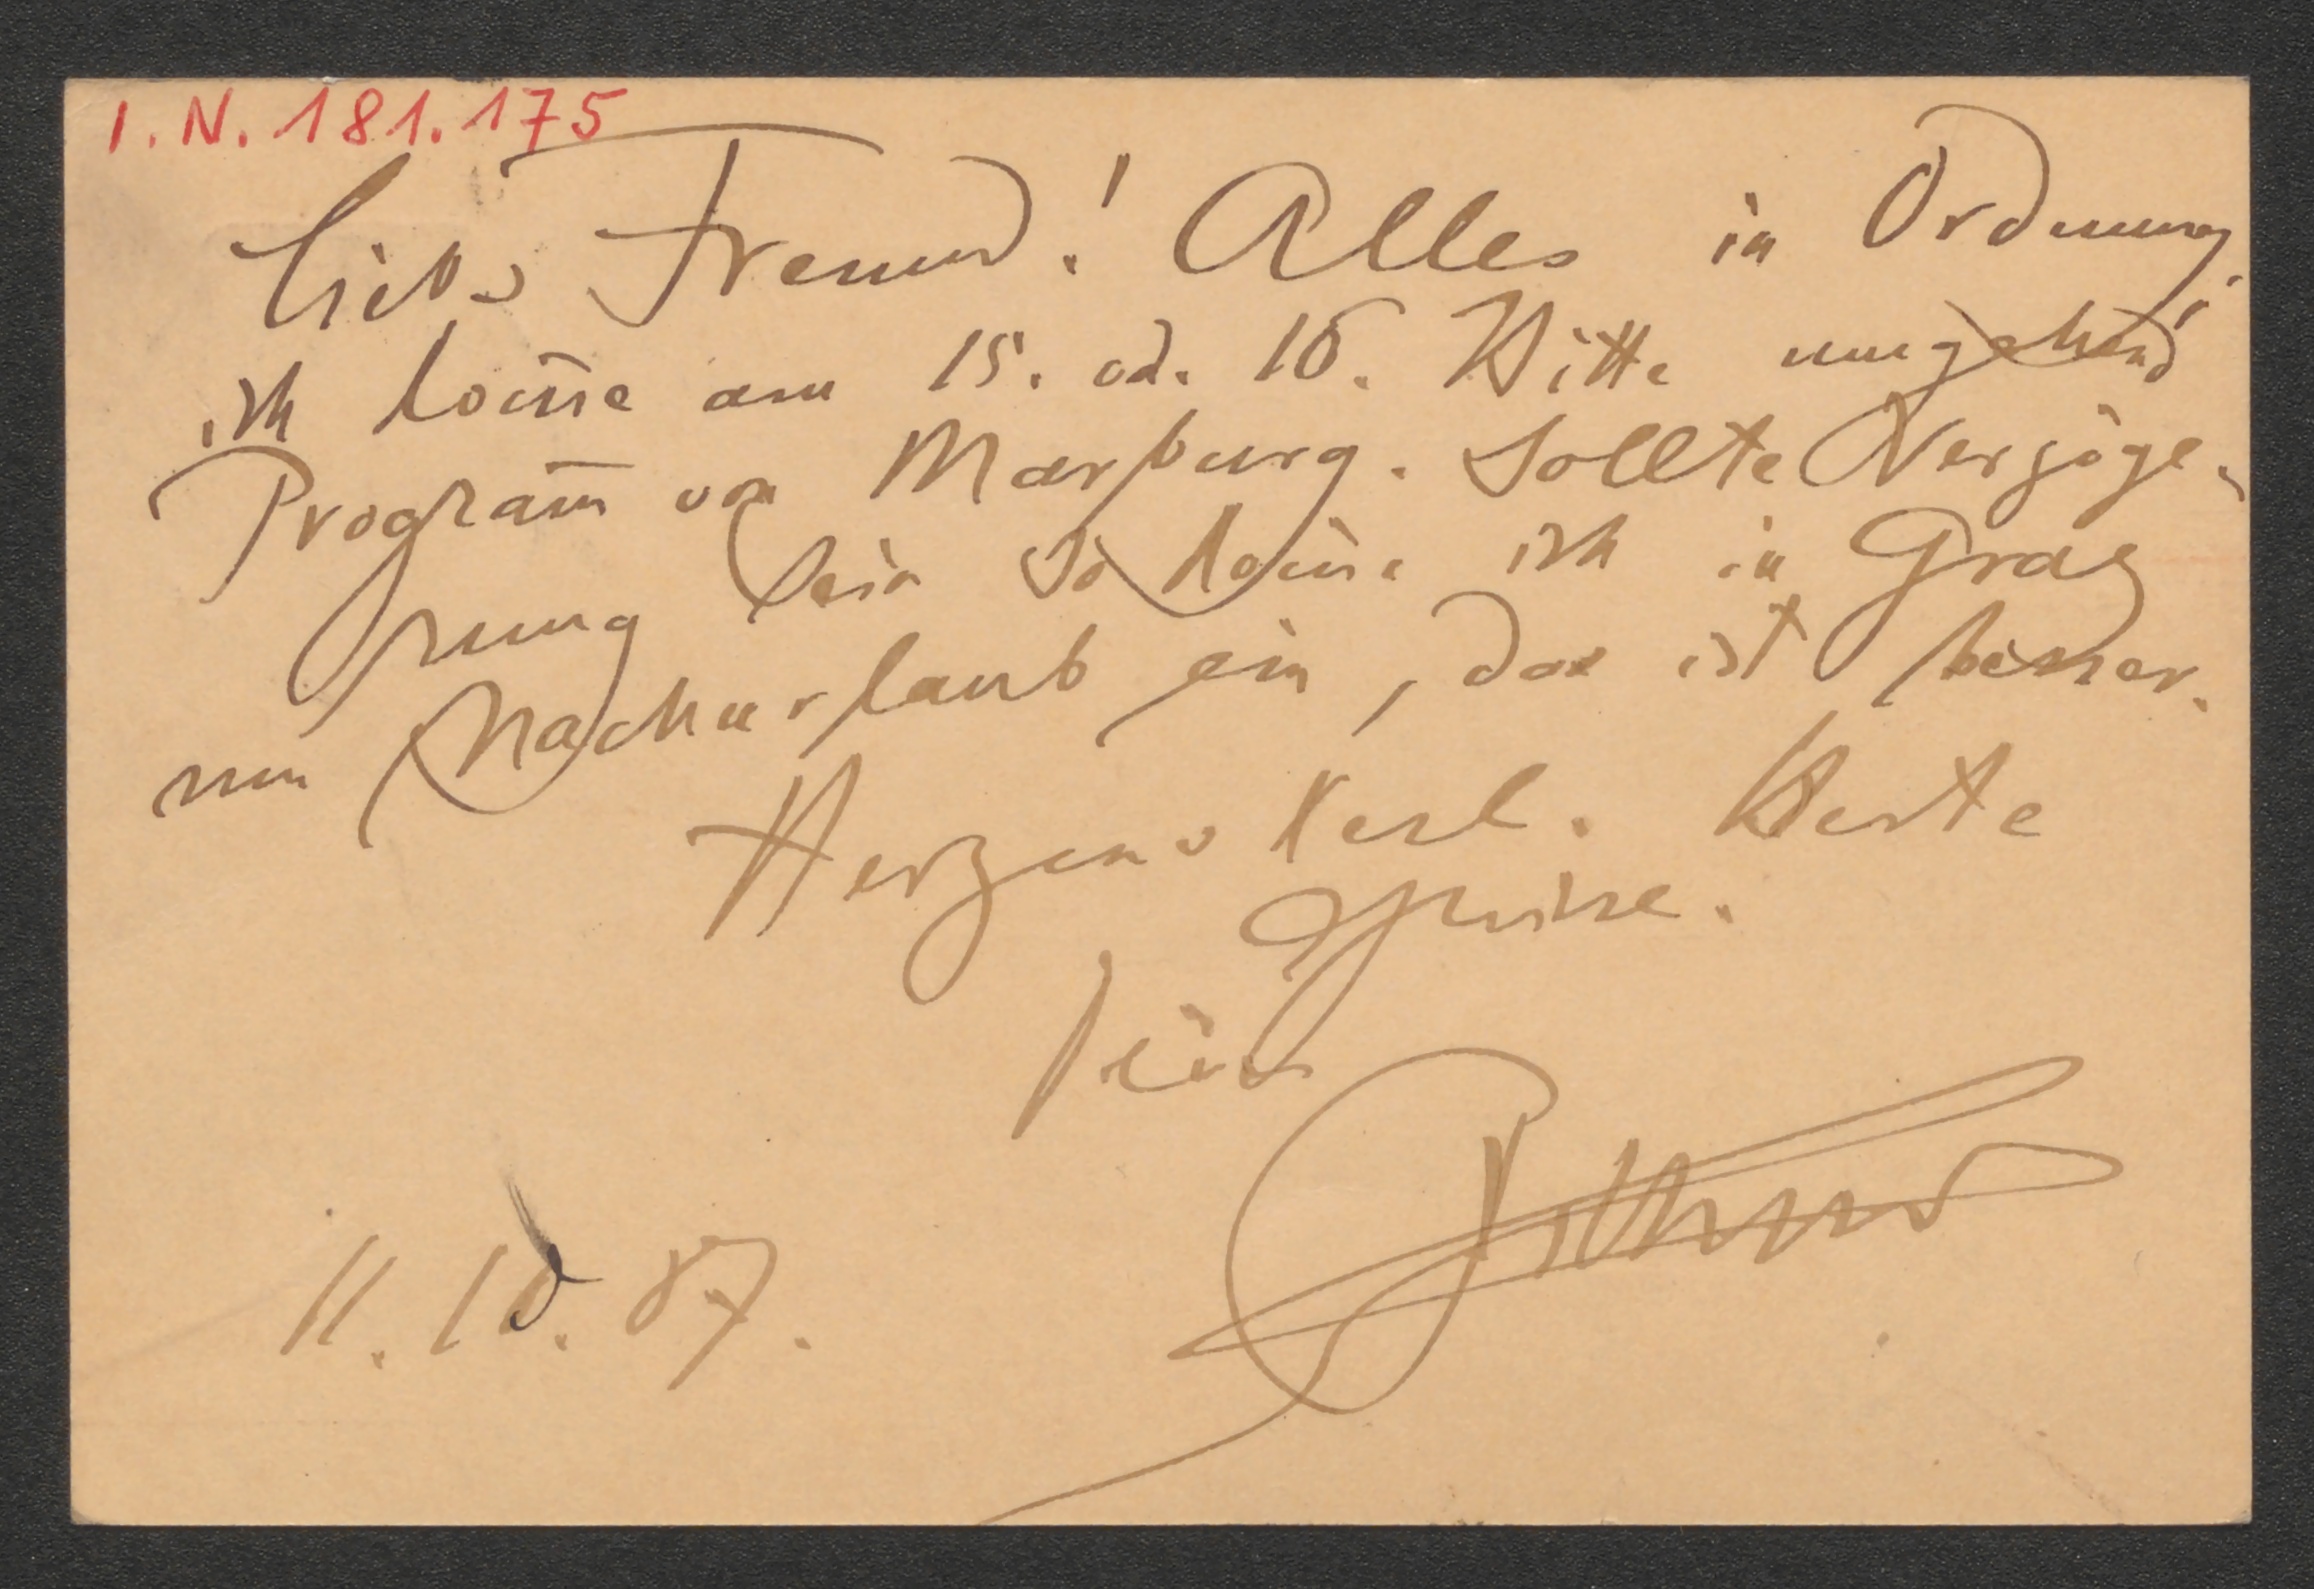 I.N. 181.175
Liebs Freund! Alles in Ordnung.
ich kom̄e am 15. od. 16. Bitte umgehend
Program̄ von Marburg. Sollte Verzöge-
rung sein so kom̄e ich in Graz
um Nachurlaub ein, das ist besser.
Herzenskerl. Beste
Grüsse.
Dein
11. 10. 87.